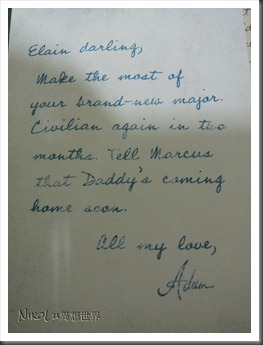 Elain darling,
Make the most of
your brand-new major.
Civilian again in two
months. Tell Marcus
that Daddy's coming
home soon.
All my love,
Adam